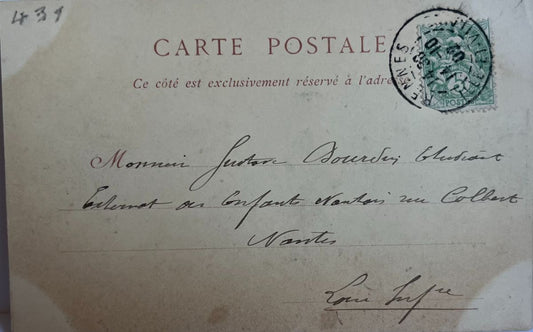 439
CARTE POSTALE
Ce côté est exclusivement réservé à l'adre
RENNES
POSTES
Monsieur Gustave Bourdin Etudiant
Externat des Enfants Nantais rue Colbert
Nantes
Loire Infre